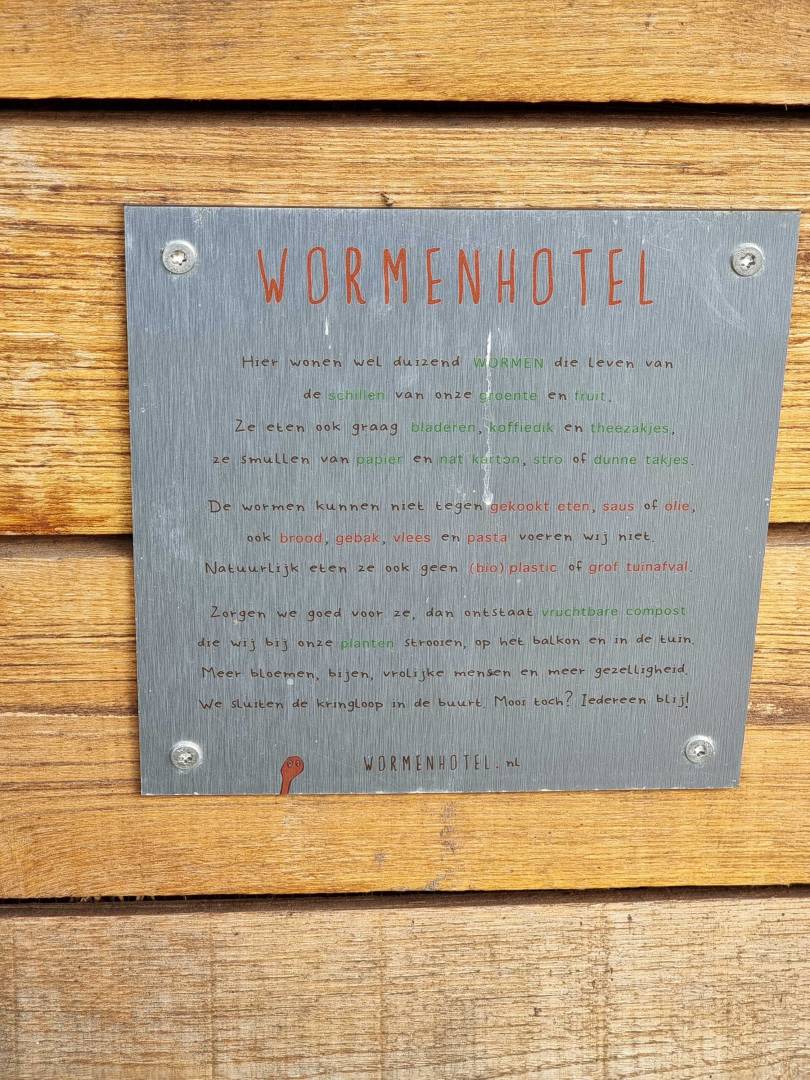 WORMENHOTEL
Hier wonen wel duizend WORMEN die leven van
de schillen van onze groente en fruit.
Ze eten ook graag bladeren, koffiedik en theezakjes,
ze smullen van papier en nat karton, stro of dunne takjes.
De wormen kunnen niet tegen gekookt eten, saus of olie,
ook brood, gebak, vlees en pasta voeren wij niet.
Natuurlijk eten ze ook geen (bio) plastic of grof tuinafval.
Zorgen we goed voor ze, dan ontstaat vruchtbare compost
die wij bij onze planten strooien, op het balkon en in de tuin.
Meer bloemen, bijen, vrolijke mensen en meer gezelligheid.
We sluiten de kringloop in de buurt. Mooi toch? Iedereen blij!
WORMENHOTEL.nl